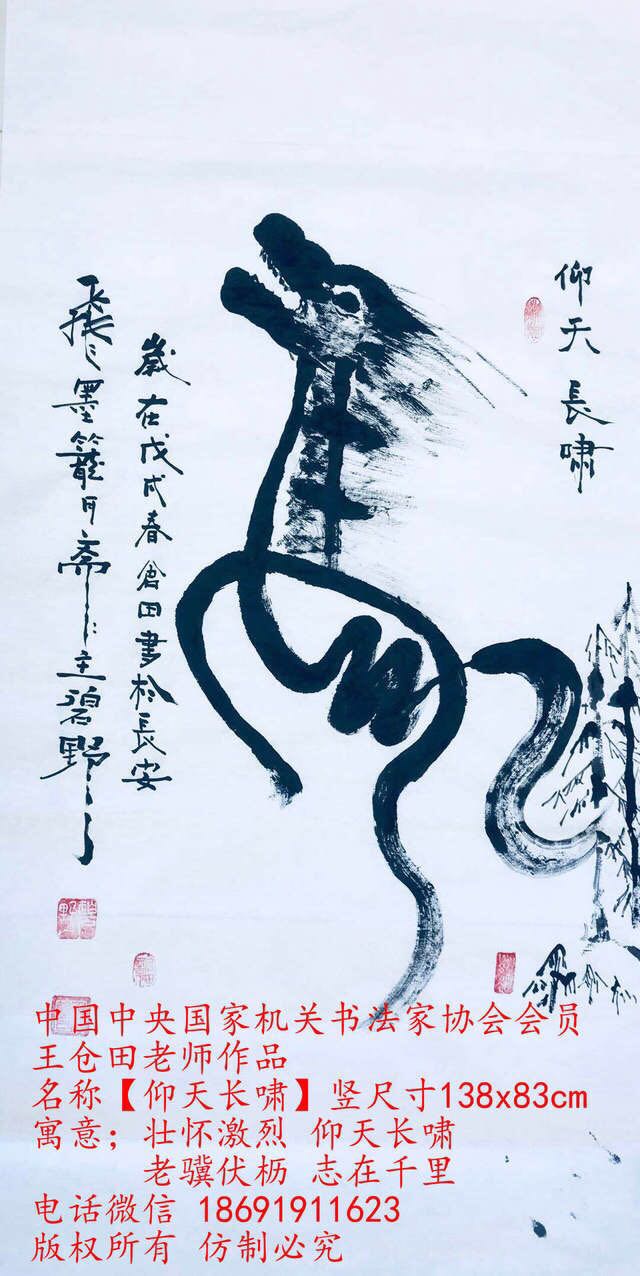 仰天長嘯
歲在戊戌春倉田書於長安
墨籠 斋主碧野
中国中央国家机关书法家协会会员
王仓田老师作品
名称【仰天长啸】竖尺寸138x83cm
寓意；壮怀激烈 仰天长啸
老骥伏枥 志在千里
电话微信 18691911623
版权所有 仿制必究